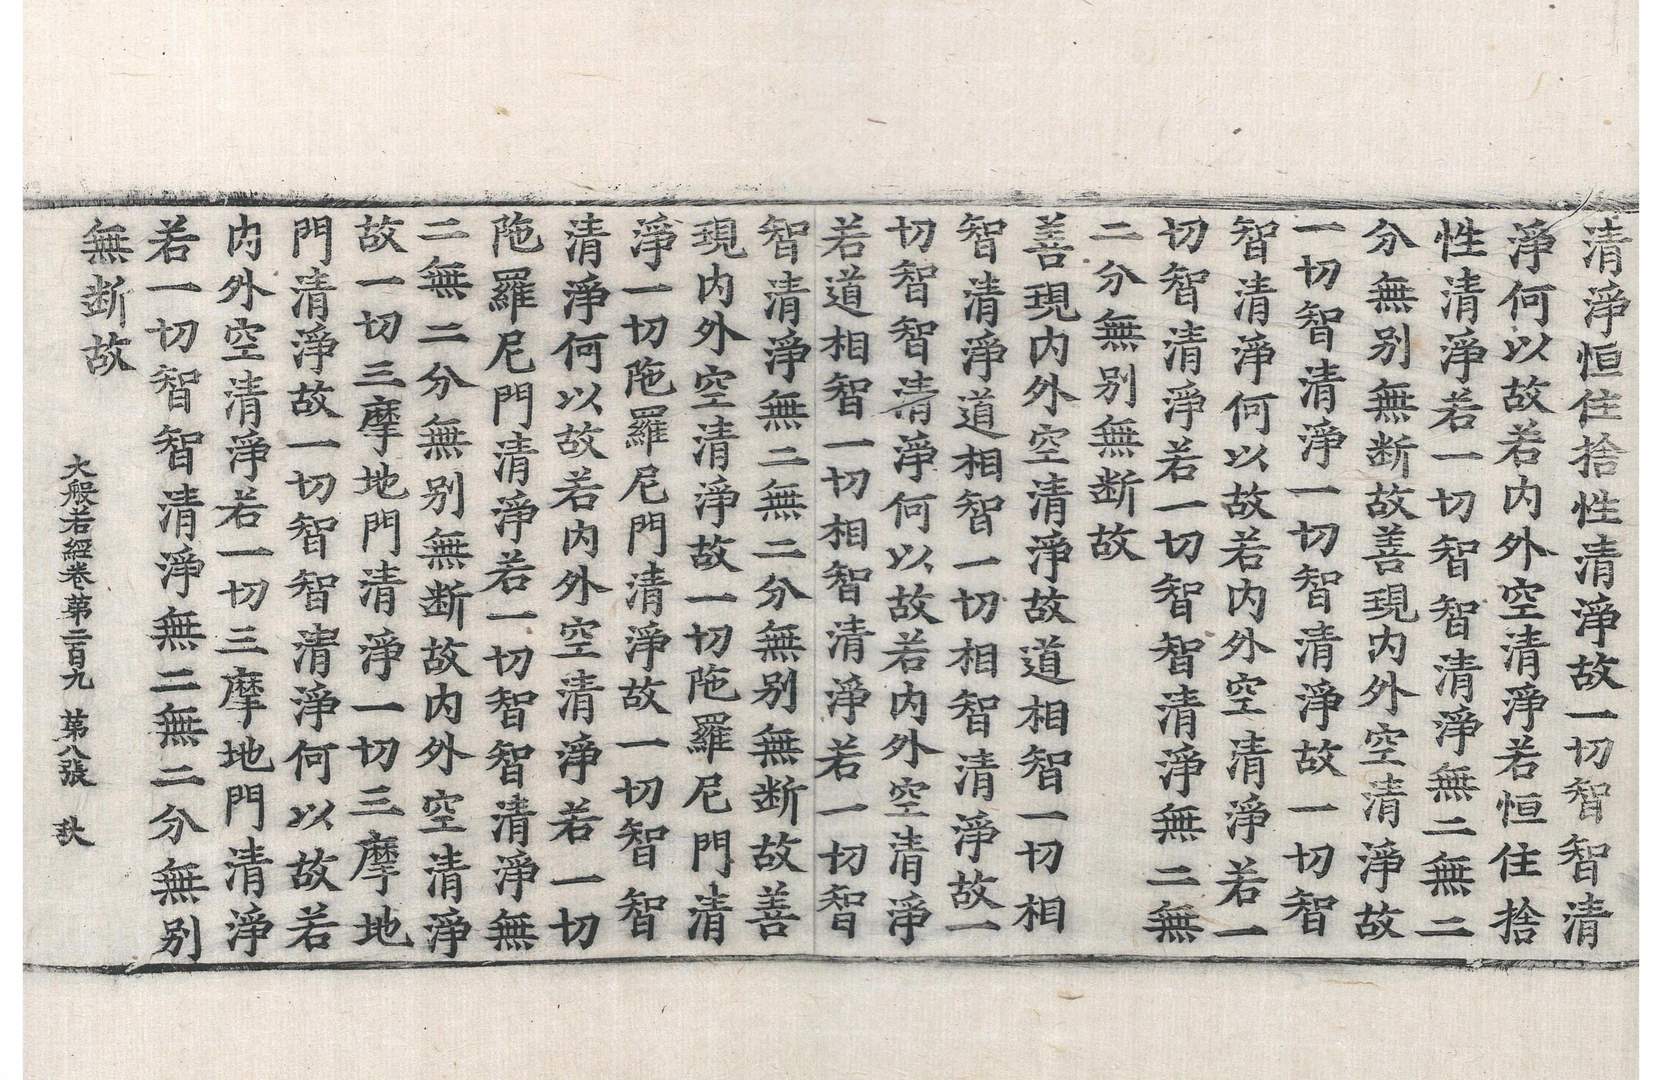 清淨恒住捨性清淨故一切智智清
淨何以故若内外空清淨若恒住捨
性清淨若一切智智清淨無二無二
分無别無断故善現内外空清淨故
一切智清淨一切智清淨故一切智
智清淨何以故若内外空清淨若一
切智清淨若一切智智清淨無二無
二分無别無断故
善現内外空清淨故道相智一切相
智清淨道相智一切相智清淨故一
切智智清淨何以故若内外空清淨
若道相智一切相智清淨若一切智
智清淨無二無二分無别無断故善
現内外空清淨故一切陁羅尼門清
淨一切陁羅尼門清淨故一切智智
清淨何以故若内外空清淨若一切
陁羅尼門清淨若一切智智清淨無
二無二分無别無断故内外空清淨
故一切三摩地門清淨一切三摩地
門清淨故一切智智清淨何以故若
内外空清淨若一切三摩地門清淨
若一切智智清淨無二無二分無别
無断故
大般若經卷第二百九 第八張 秋